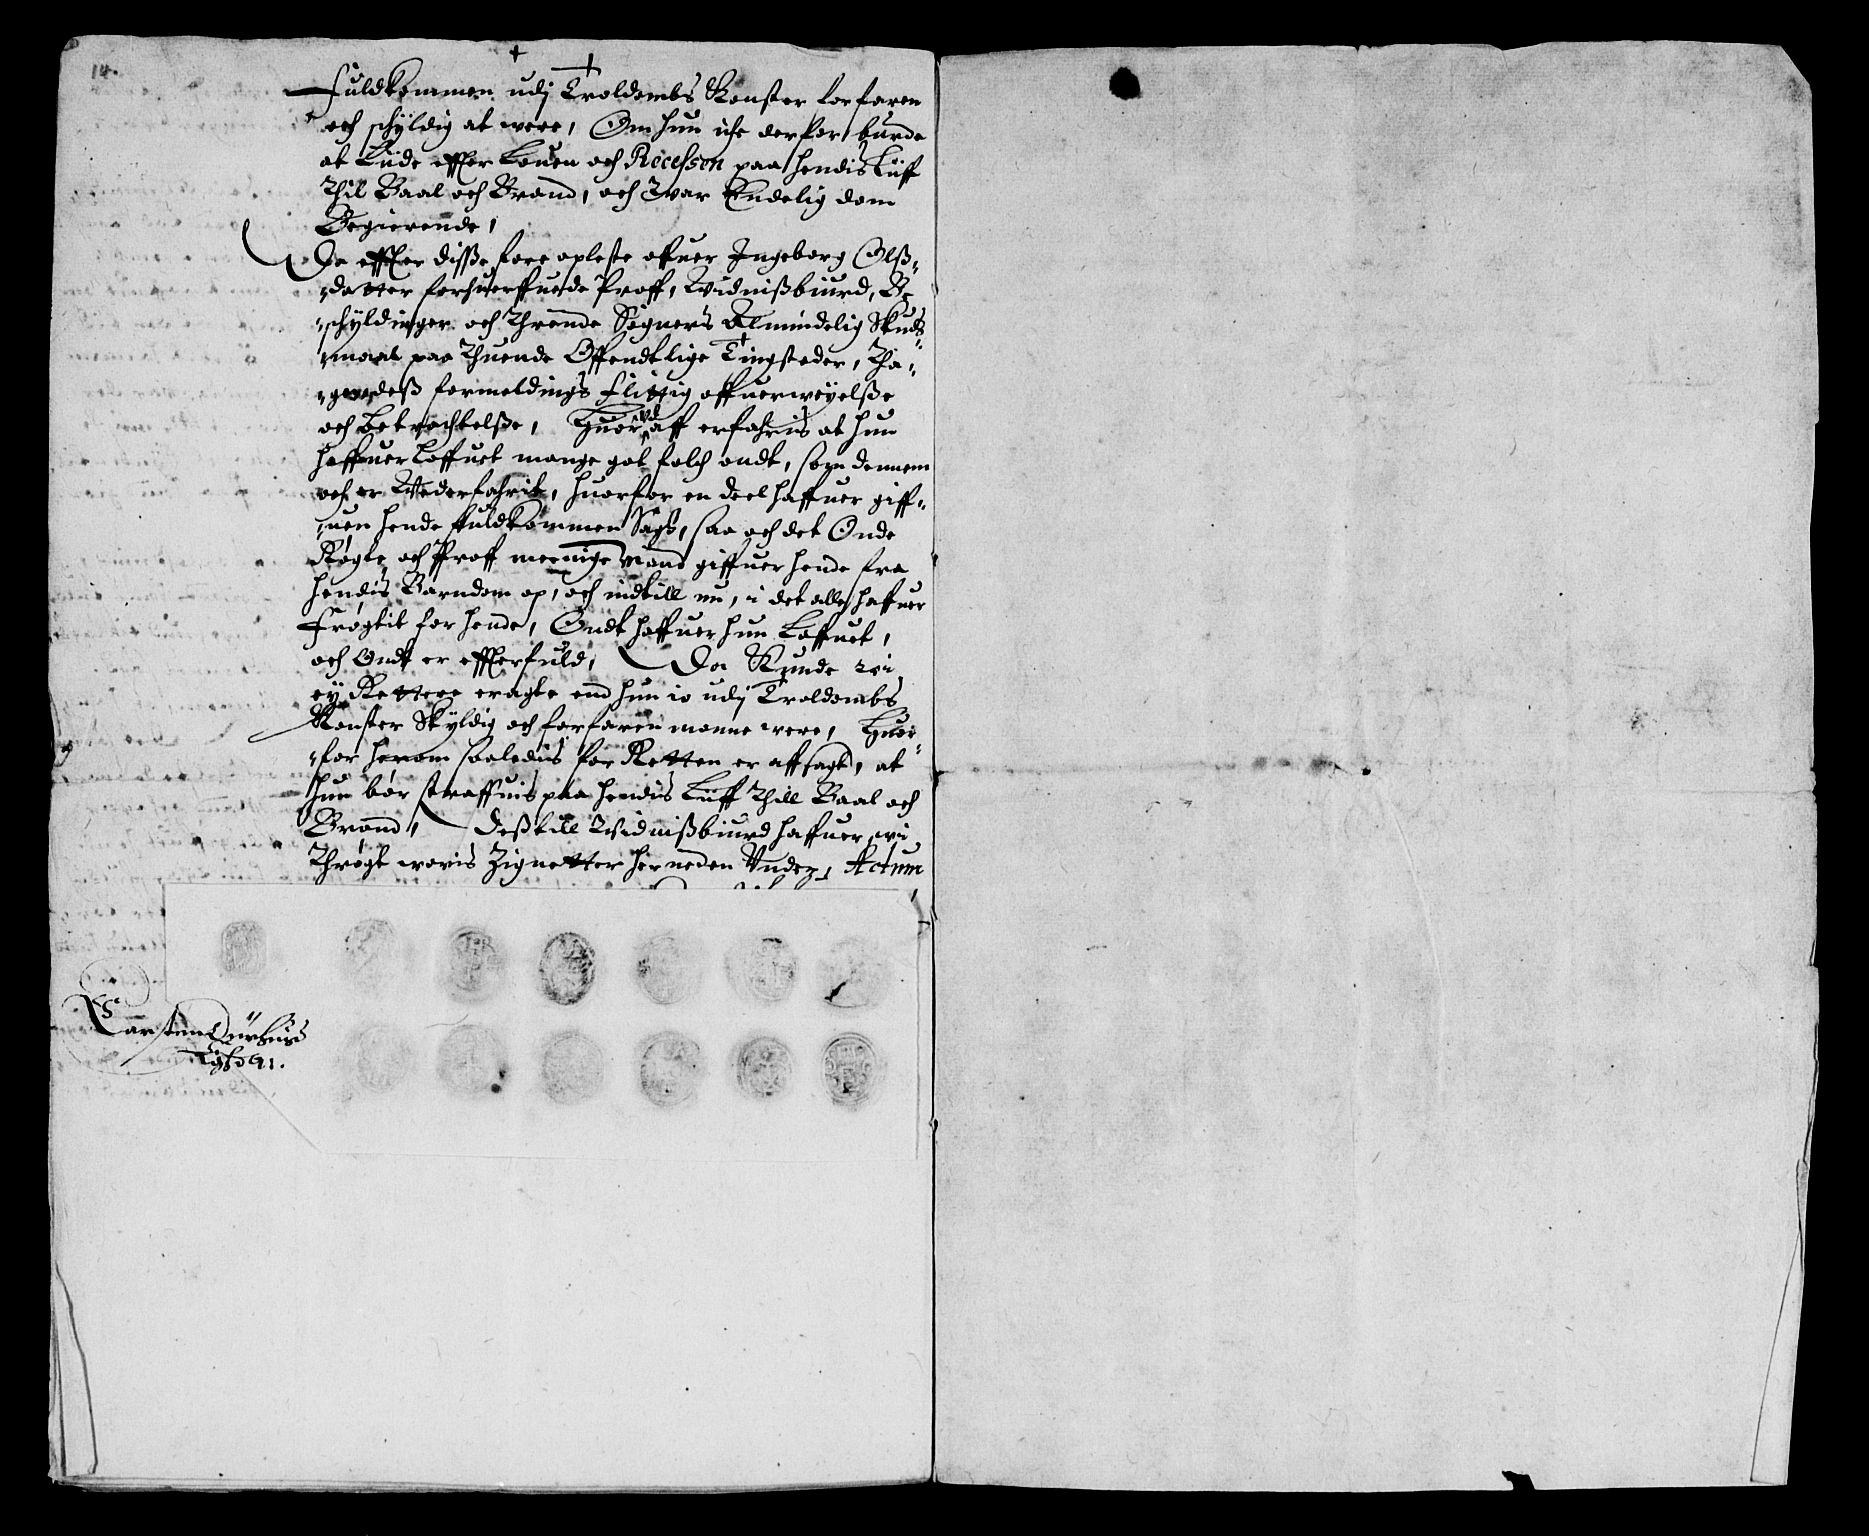 14.
fuldkommen udj Troldombs Konster forfaren
och schÿldig at were, Om hun iche derfor burde
at Lüde effter Louen och Recessen paa hendis Lüff
Thil Baal och Brand, och War Endelig dom
Begierende,
Da effter disse fore opleste offuer Ingeborg Olß-
datter forhuerffuede Proff, Widnißbiurd, Be
schÿldinger och Thrende Sogners Almindelig Skuds
maal paa Thuende Offendtlige Tingsteder, Tha-
gendeß formeldings flittig offuerweyelße
och betrachtelße, Huor vd aff erfahris at hun
haffuer Loffuet mange got folch ondt, som dennem
och er Wederfahrit, huorfor en deel haffuer giff-
uen hende fuldkommen Sagh, saa och det Onde
Røgte och Proff menige Mand giffuer hende fra
hendis Barndom op, och indtill nu, i det alle haffuer
Frøgtit for hende, Ondt haffuer hun Loffuet,
och Ondt er effterfuld, Da Kunde wi
ey Rettere eragte end hun io udj Troldombs
Konster Skÿldig och forfaren monne were, Huor-
for herom saaledis for Retten er affsagd, at
hun bør straffuis paa hendis Lüff Thill Baal och
Brand, Deß till Widnißbiurd haffuer wi
Thrøgt woris Zignetter her neden Vnder, Actum
Karsten